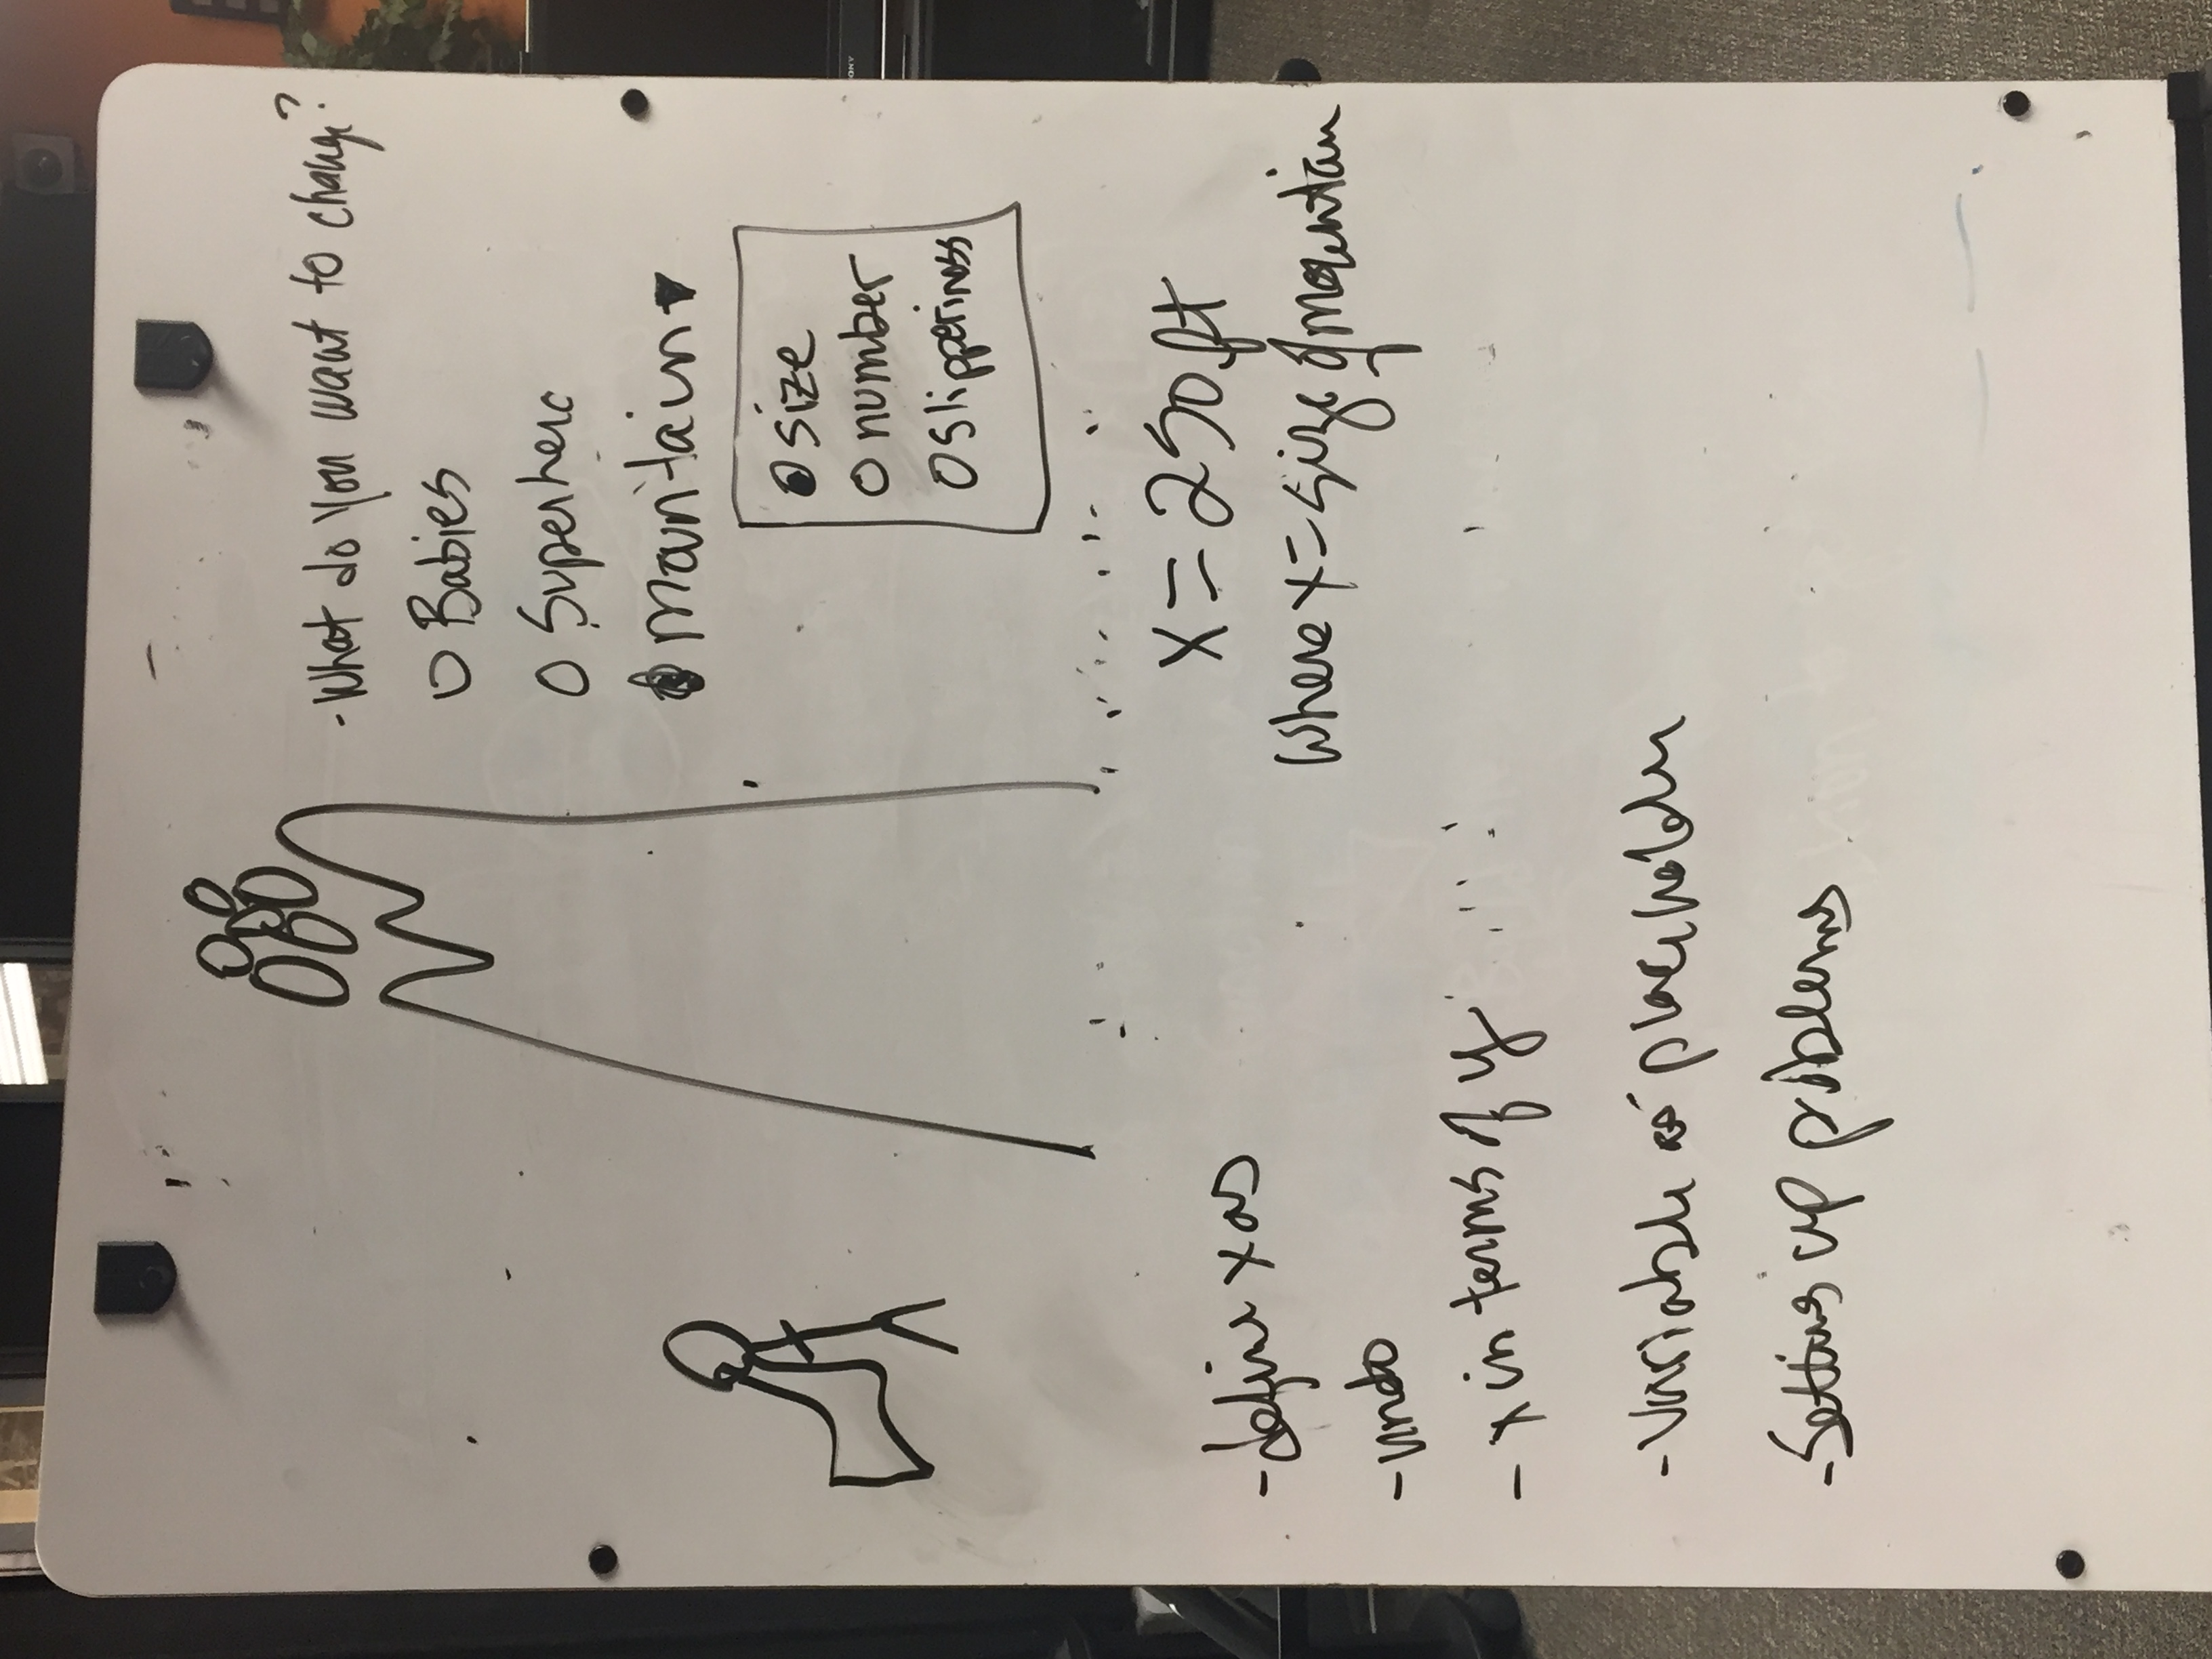 - What do you want to change?
Babies
Superhero
mountain
size
number
slipperiness
x = 250 ft
where x = size of mountain
- define x as
- undo
- x in terms of y
- Variable as placeholder
- Setting up problems
SONY